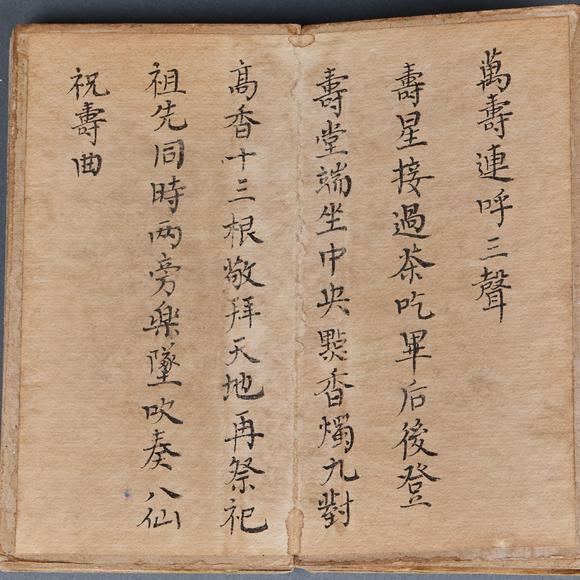 萬壽連呼三聲
壽星接過茶吃畢后後登
壽堂端坐中央點香燭九對
高香十三根敬拜天地再祭祀
祖先同時两旁樂墜吹奏八仙
祝壽曲